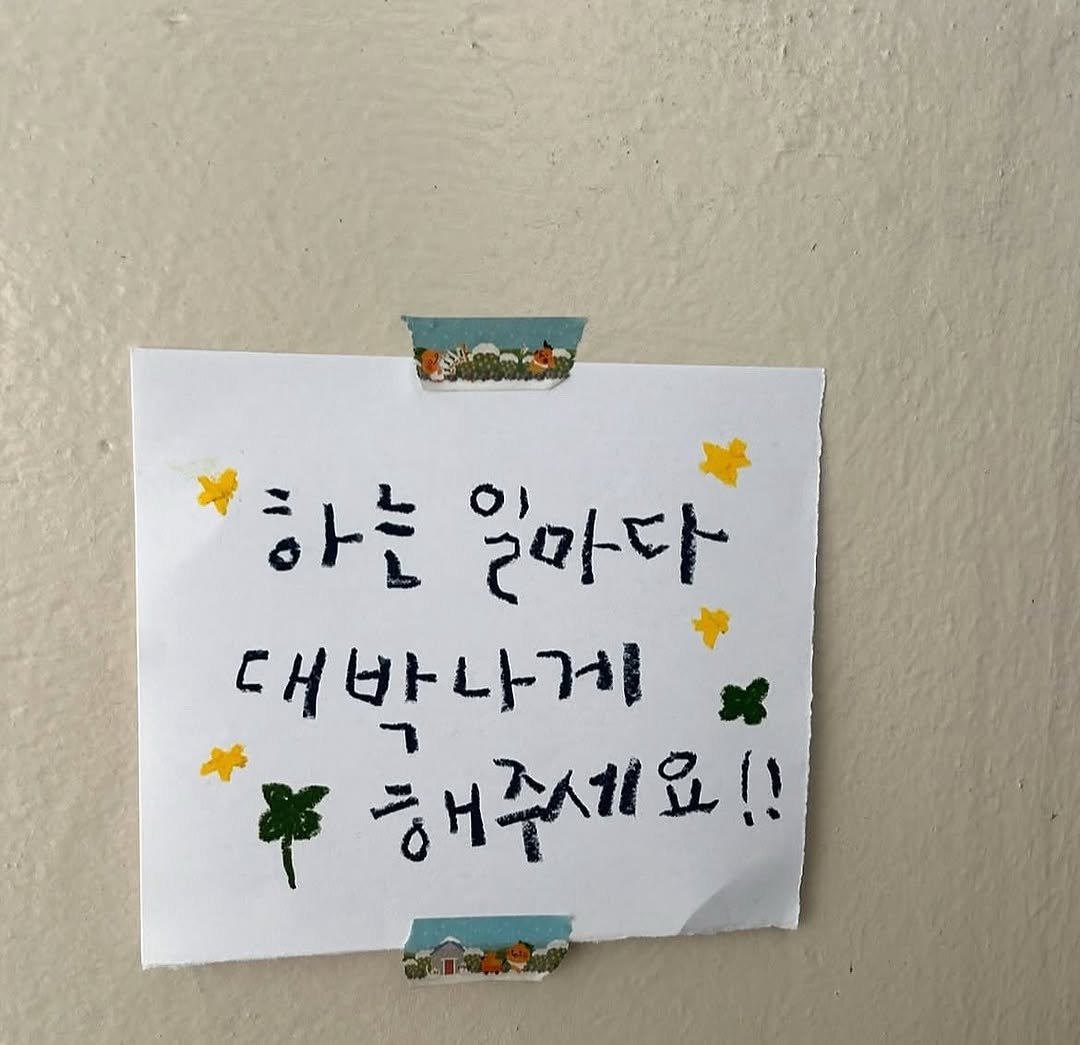 하는 일마다
대박나게
해주세요!!